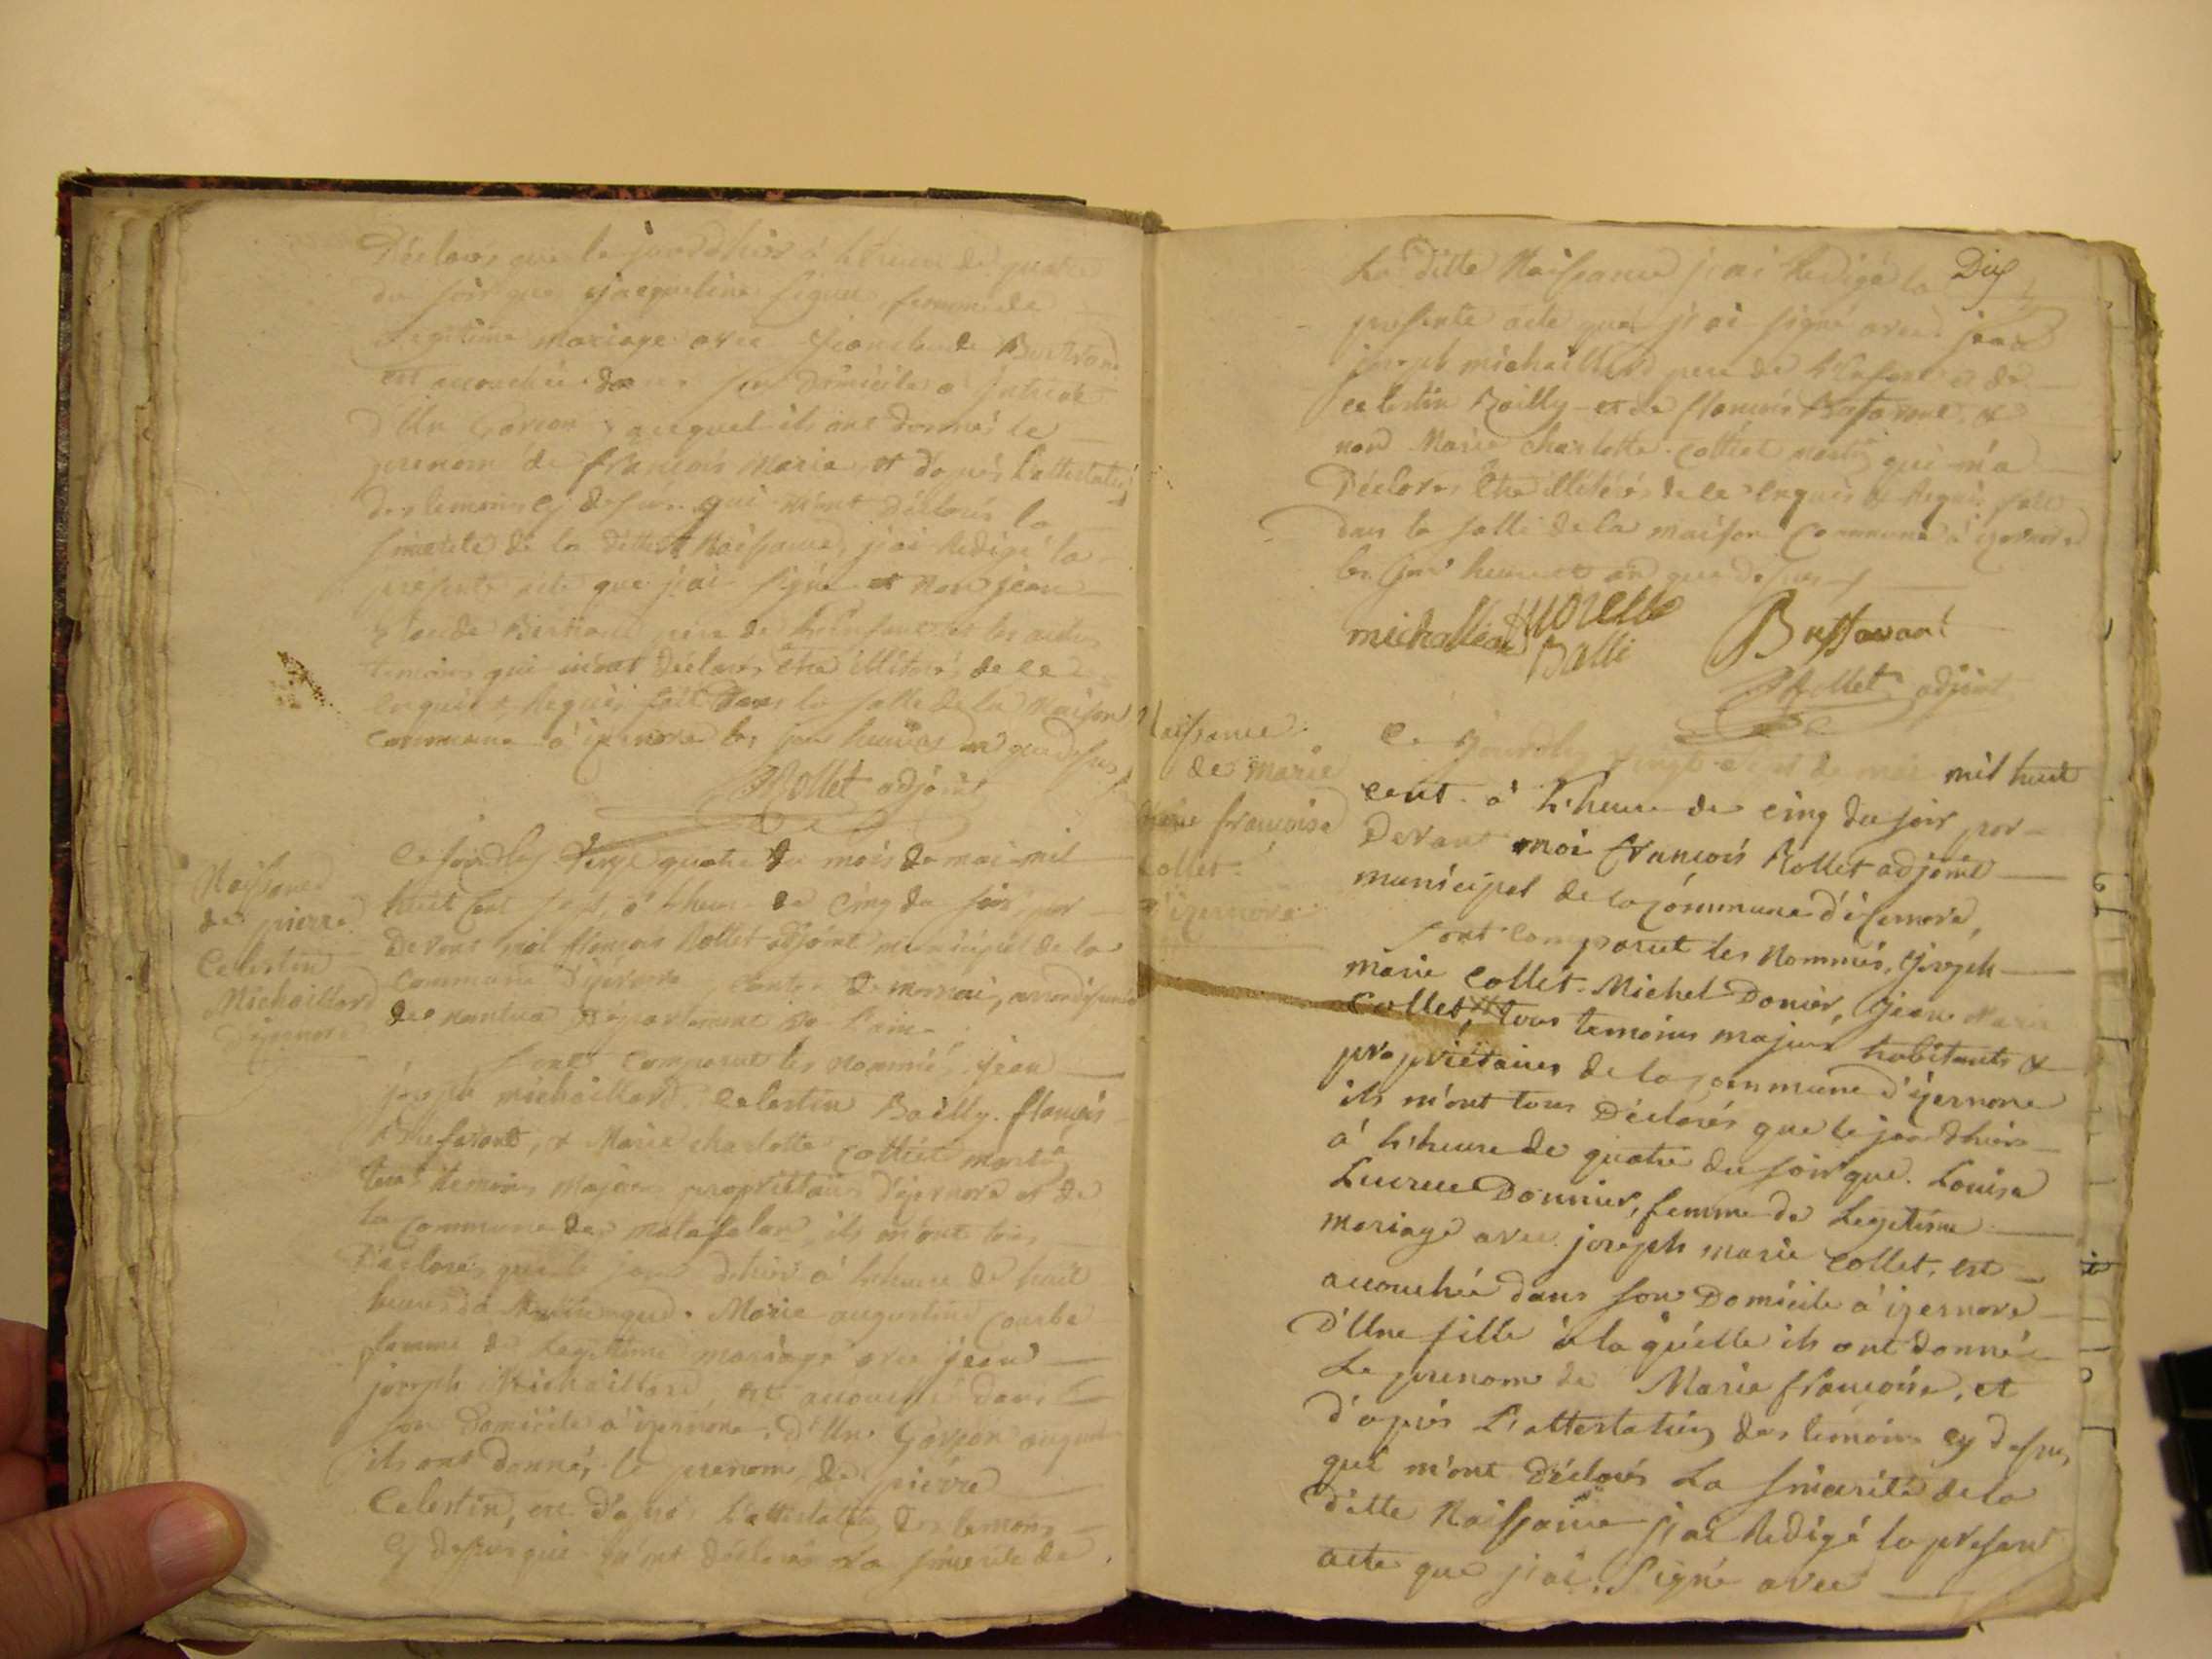 Déclarés que le jourdhier à L'heure de quatre
du soir que jacqueline femme de
Legitime mariage avec jean claude Bertrand
est accouchée dans son Domicile à
D'Un Garcon auquel ils ont donnés le
prenom de francois Marie et d'après L'attestation
des temoins cy dessus qui m'ont déclarés la
sincerité de la ditte Naissance, j'ai Redigé la
presente acte que j'ai signé et Non jean
Claude Bertrand père de L'enfant et les autres
temoins qui m'ont Déclarés être illitérés de ce
Enquis & Requis fait dans la salle de la Maison
Commune à izernore les jour heure et an que dessus
Rollet adjoint
Naissance
de pierre
Celestin
Michaillard
D'izernore
Ce jourdhuy Vingt quatre du mois de mai mil
huit cent sept, à L'heure de Cinq du soir, par
Devant moi francois Rollet adjoint municipal de la
Commune D'izernore de nantua Département de L'ain
Sont comparut les nommés jean
joseph michaillard Celestin Bailly francois
Bussavant, & Marie charlotte
tous temoins Majeurs propriettaires D'izernore et de
la Commune de matafelon, ils m'ont tous
Déclarés que le jour dhier à L'heure de huit
heures du Matin que Marie augustine
femme de Legittime mariage avec jean
joseph Michaillard est accouchée dans
son Domicile à izernore D'Un Garçon auquel
ils ont donné, le prenom de pierre
Celestin, et D'après L'attestation des temoins
Cy dessus qui m'ont déclarés La sincerité de
Dix
La ditte Naissance j'ai Redigé la
presente acte que j'ai signé avec jean
joseph michaillard pere de L'Enfant et de
celestin Bailly et de francois Bussavant &
non Marie Charlotte qui m'a
Déclarés Etre illitérés de ce Enquis & Requis fait
dans la salle de la maison Commune à izernore
les jour heure et an que dessus
michallard
Balli
Bussavant
Rollet adjoint
Naissance
de Marie
francoise
Collet
d'izernore
Ce jourdhuy vingt de mai mil huit
cent à L'heure de cinq du soir par
Devant moi francois Rollet adjoint
municipal de la Commune d'isernore,
Sont comparut les Nommés, joseph
marie Collet. Michel Donier, jean Marie
Collet, tous temoins majeurs habitants &
propriétaires de la commune d'izernore
ils m'ont tous Déclarés que le jourdhier
à L'heure de quatre du soir que. Louise
Lucrece Donnier, femme de Legitime
mariage avec joseph marie Collet, est
accouchée dans son Domicile à izernore
D'Une fille à la quelle ils ont donné
Le prenom de Marie francoise, et
d'après L'attestation des temoins cy dessus
qui m'ont déclarés La sincerité de la
ditte Naissance j'ai Redigé la present
acte que j'ai Signé avec